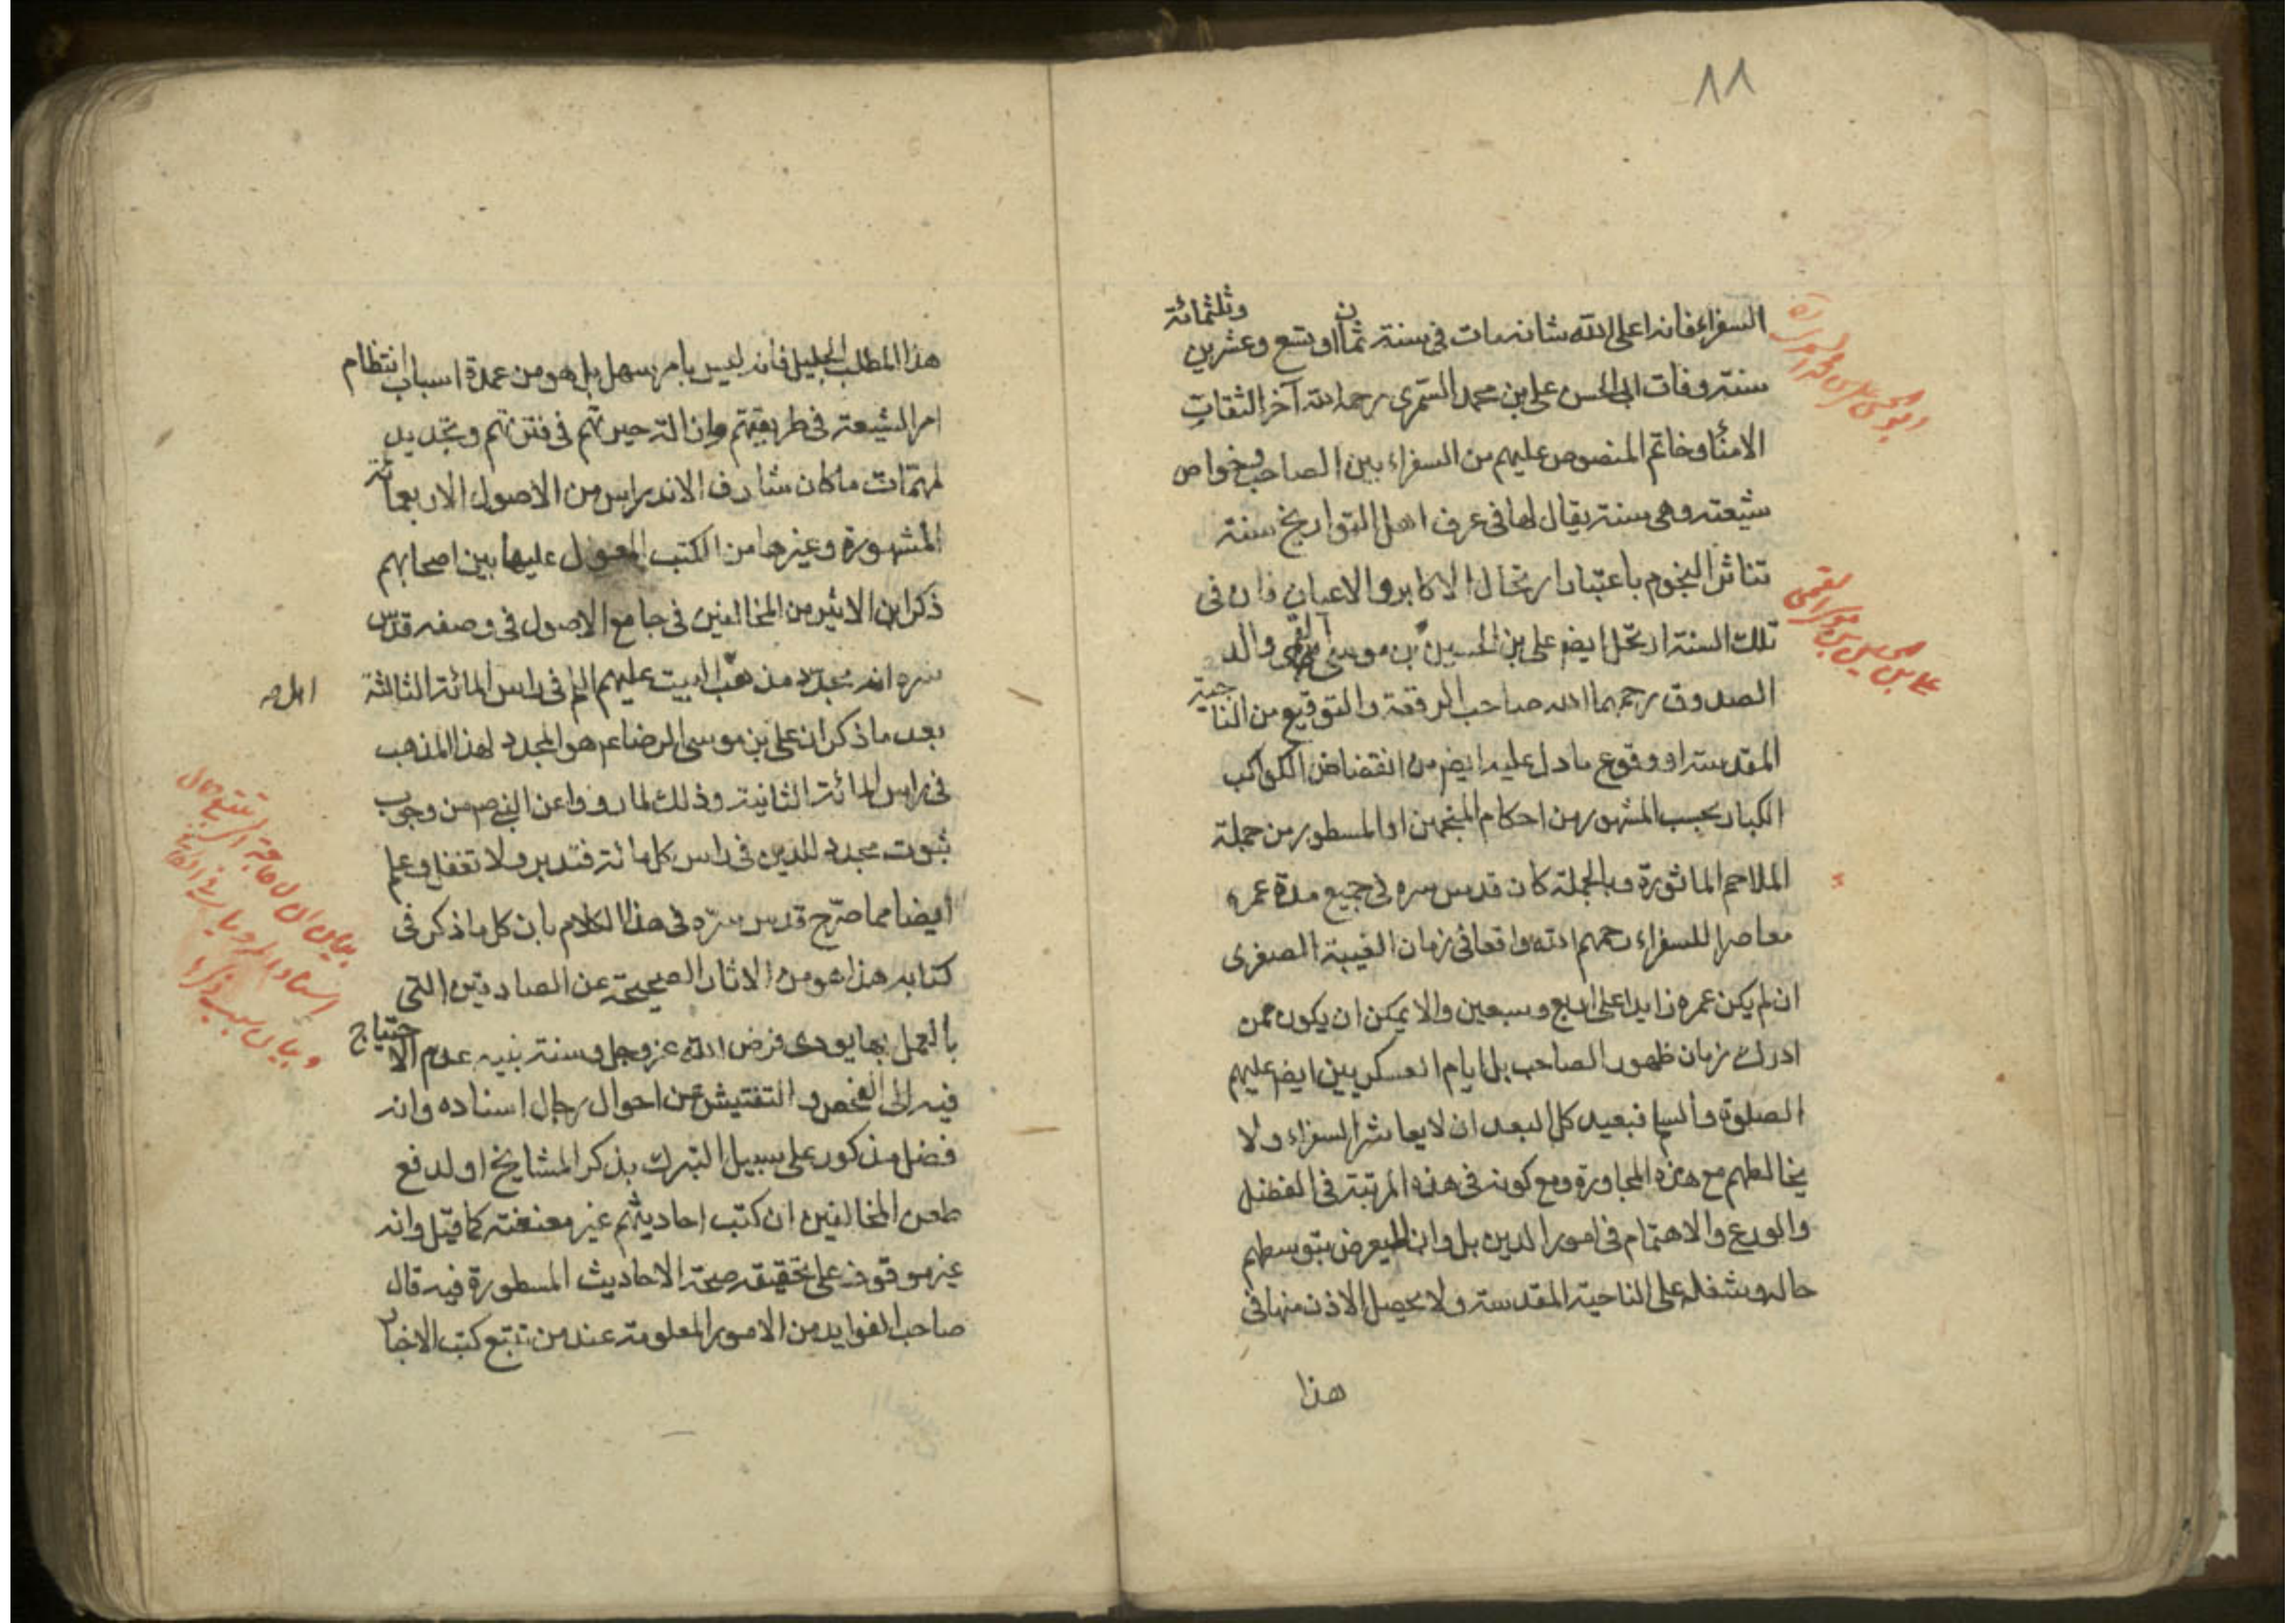 ١١
السفراء فانه اعلى الله شانه مات في سنة ثمان او تسع وعشرين وثلثمائة
سنة وفات ابي الحسن علي بن محمد السمري رحمه الله آخر الثقات
الامناء وخاتم المنصوص عليهم من السفراء بين الصاحب وخواص
شيعته وهي سنة يقال لها في عرف اهل التواريخ سنة
تناثر النجوم باعتبار ارتحال الاكابر والاعيان فان في
تلك السنة ارتحل ايضم علي بن الحسين بن موسى القمي والد
الصدوق رحمهما الله صاحب الرقعة والتوقيع من الناحية
المقدسة او وقوع ما دل عليه ايضم من انقضاض الكواكب
الكبار بحسب المشهور من احكام المنجمين او المسطور من جملة
الملاحم الماثورة وبالجملة كان قدس سره في جميع مدة عمره
معاصرا للسفراء رحمهم الله واقعا في زمان الغيبة الصغرى
ان لم يكن عمره زايدا على اربع وسبعين والا يمكن ان يكون ممن
ادرك زمان ظهور الصاحب بل ايام العسكريين ايضم عليهم
الصلوة والسلم فبعيد كل البعد ان لا يعاشر السفراء ولا
يخالطهم مع هذه المجاورة ومع كونه في هذه المرتبة في الفضل
والورع والاهتمام في امور الدين بل وان لم يعرض بتوسطهم
حاله وشغله على الناحية المقدسة ولا يحصل الاذن منها في
هذا
هذا المطلب الجليل فانه ليس بامر سهل بل هو من عمدة اسباب انتظام
امر الشيعة في طريقتهم وازالة حيرتهم في فتنتهم وتجديد
لمهمات ما كان شارف الاندراس من الاصول الاربعمائة
المشهورة وغيرها من الكتب المعول عليها بين اصحابهم
ذكر ابن الاثير من المخالفين في جامع الاصول في وصفه قدس
سره انه مجدد مذهب البيت عليهم السلم في راس المائة الثالثة
اهل صه
بعد ما ذكر ان علي بن موسى الرضا عم هو المجدد لهذا المذهب
في راس المائة الثانية وذلك لما رووا عن النبي صم من وجوب
ثبوت مجدد للدين في راس كل مائة فتدبر ولا تغفل وعلم
ايضا مما صرح قدس سره في هذا الكلام بان كل ما ذكر في
كتابه هذا هو من الاثار الصحيحة عن الصادقين التي
بالعمل بها يودى فرض الله عز وجل وسنة نبيه عدم الاحتياج
فيه الى الفحص والتفتيش عن احوال رجال اسناده وانه
فضل مذكور على سبيل التبرك بذكر المشايخ او لدفع
طعن المخالفين ان كتب احاديثهم غير معنعنة كما قيل وانه
غير موقوف على تحقيقه صحة الاحاديث المسطورة فيه قال
صاحب الفوايد من الامور المعلومة عند من تتبع كتب الاخبار